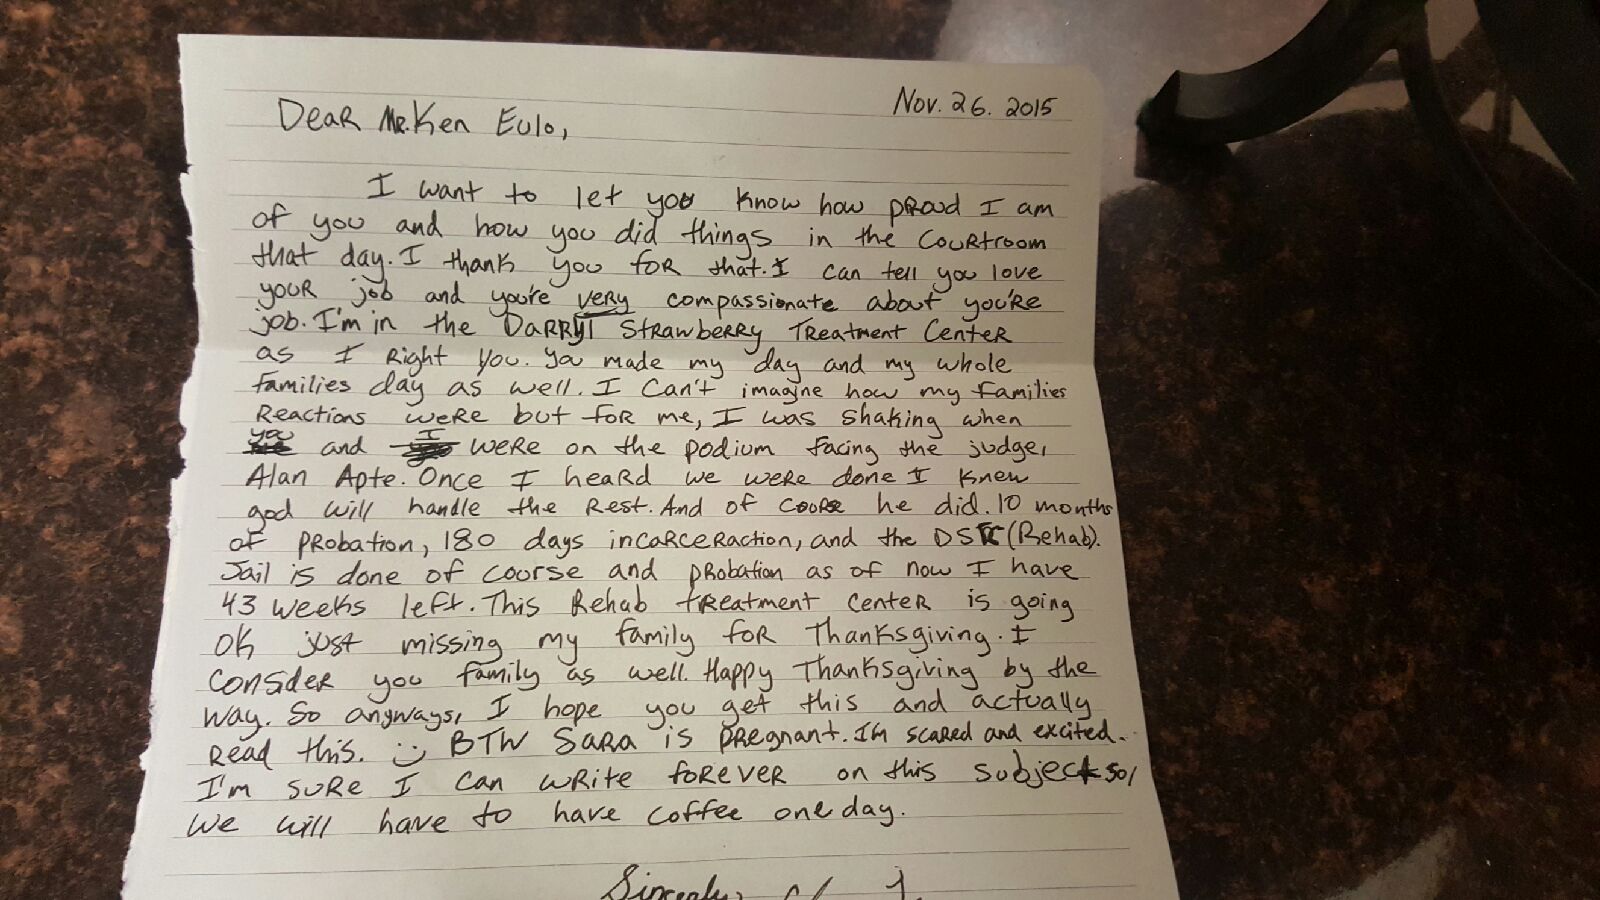 Nov. 26. 2015
Dear Mr. Ken Eulo,
I want to let you know how proud I am
of you and how you did things in the Courtroom
that day. I thank you for that. I can tell you love
your job and you're very compassionate about you're
job. I'm in the Darryl Strawberry Treatment Center
as I Right you. You made my day and my whole
families day as well. I Can't imagine how my families
Reactions were but for me, I was shaking when
you and I were on the podium facing the judge,
Alan Apte. Once I heard we were done I knew
god will handle the Rest. And of he did. 10 months
of probation, 180 days incarceraction, and the DSTC (Rehab).
Jail is done of course and probation as of now I have
43 weeks left. This Rehab treatment center is going
ok just missing my family for Thanksgiving. I
consider you family as well. Happy Thanksgiving by the
way. So anyways, I hope you get this and actually
read this. :) BTW Sara is pregnant. I'm scared and excited..
I'm sure I can write forever on this subject so,
we will have to have coffee one day.
Sincerly,